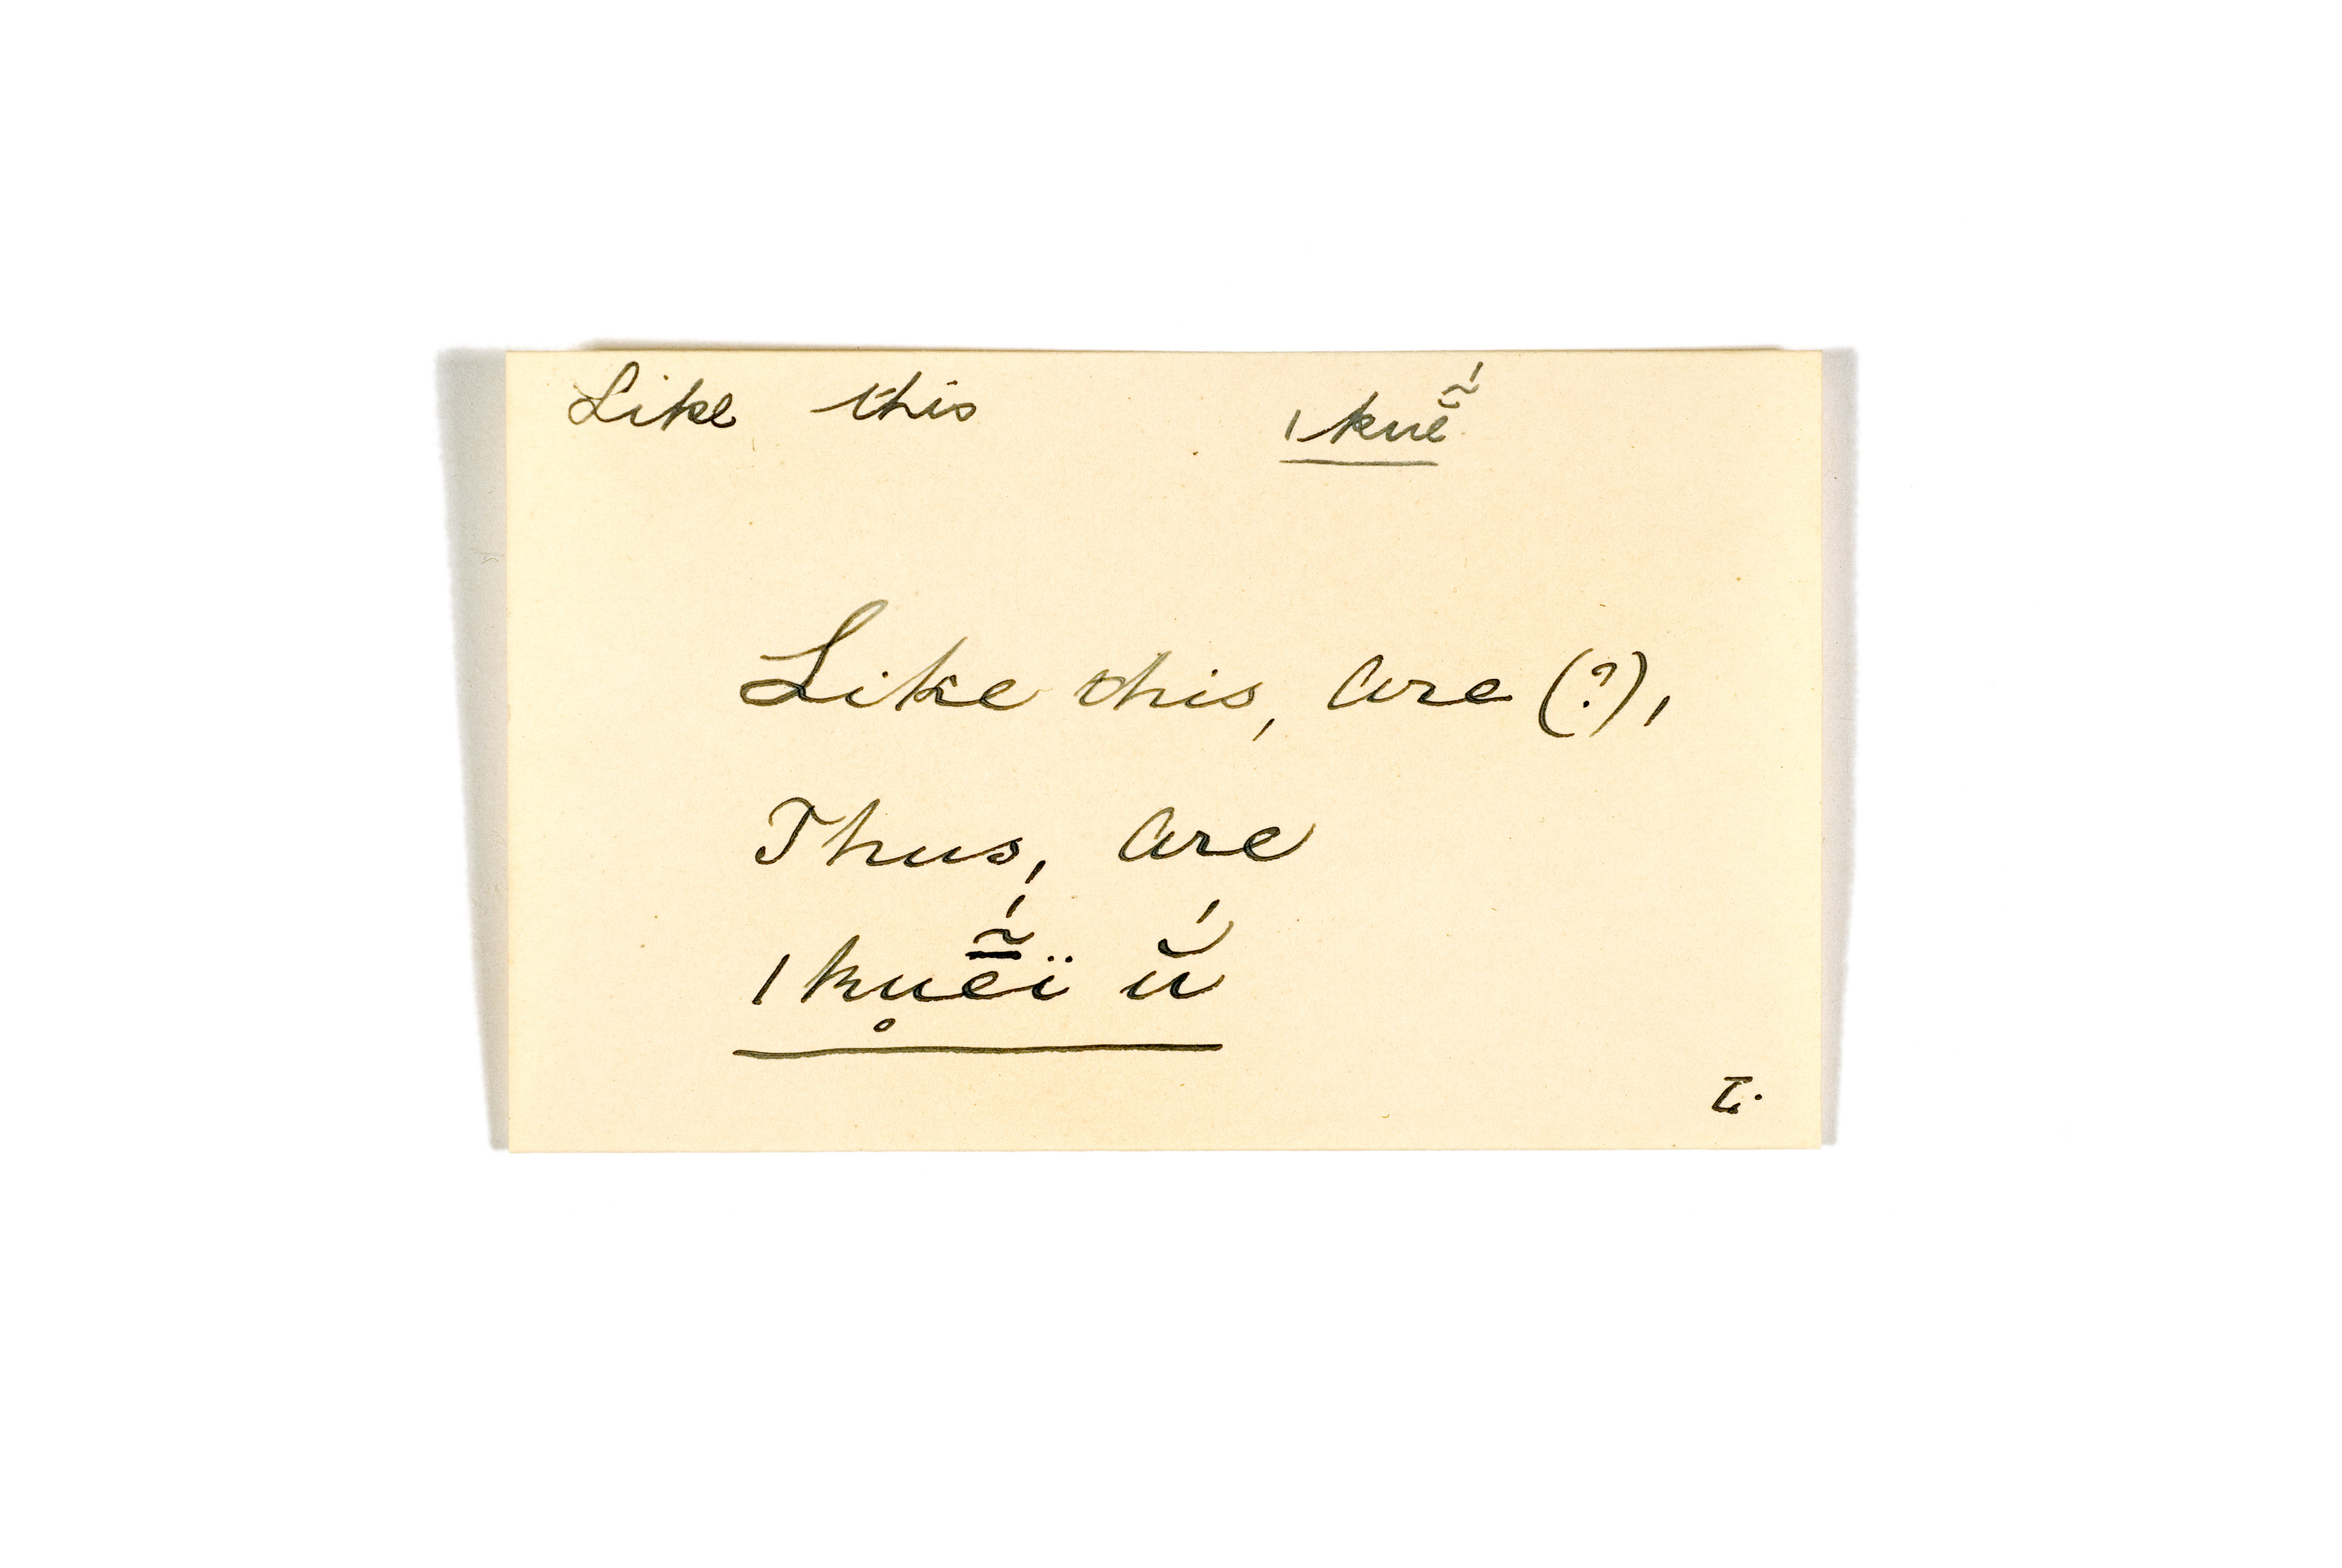 Like this ıkuẽ̆́
Like this, are (?),
Thus, are
ıku̥ē̃́ï ŭ́
L.